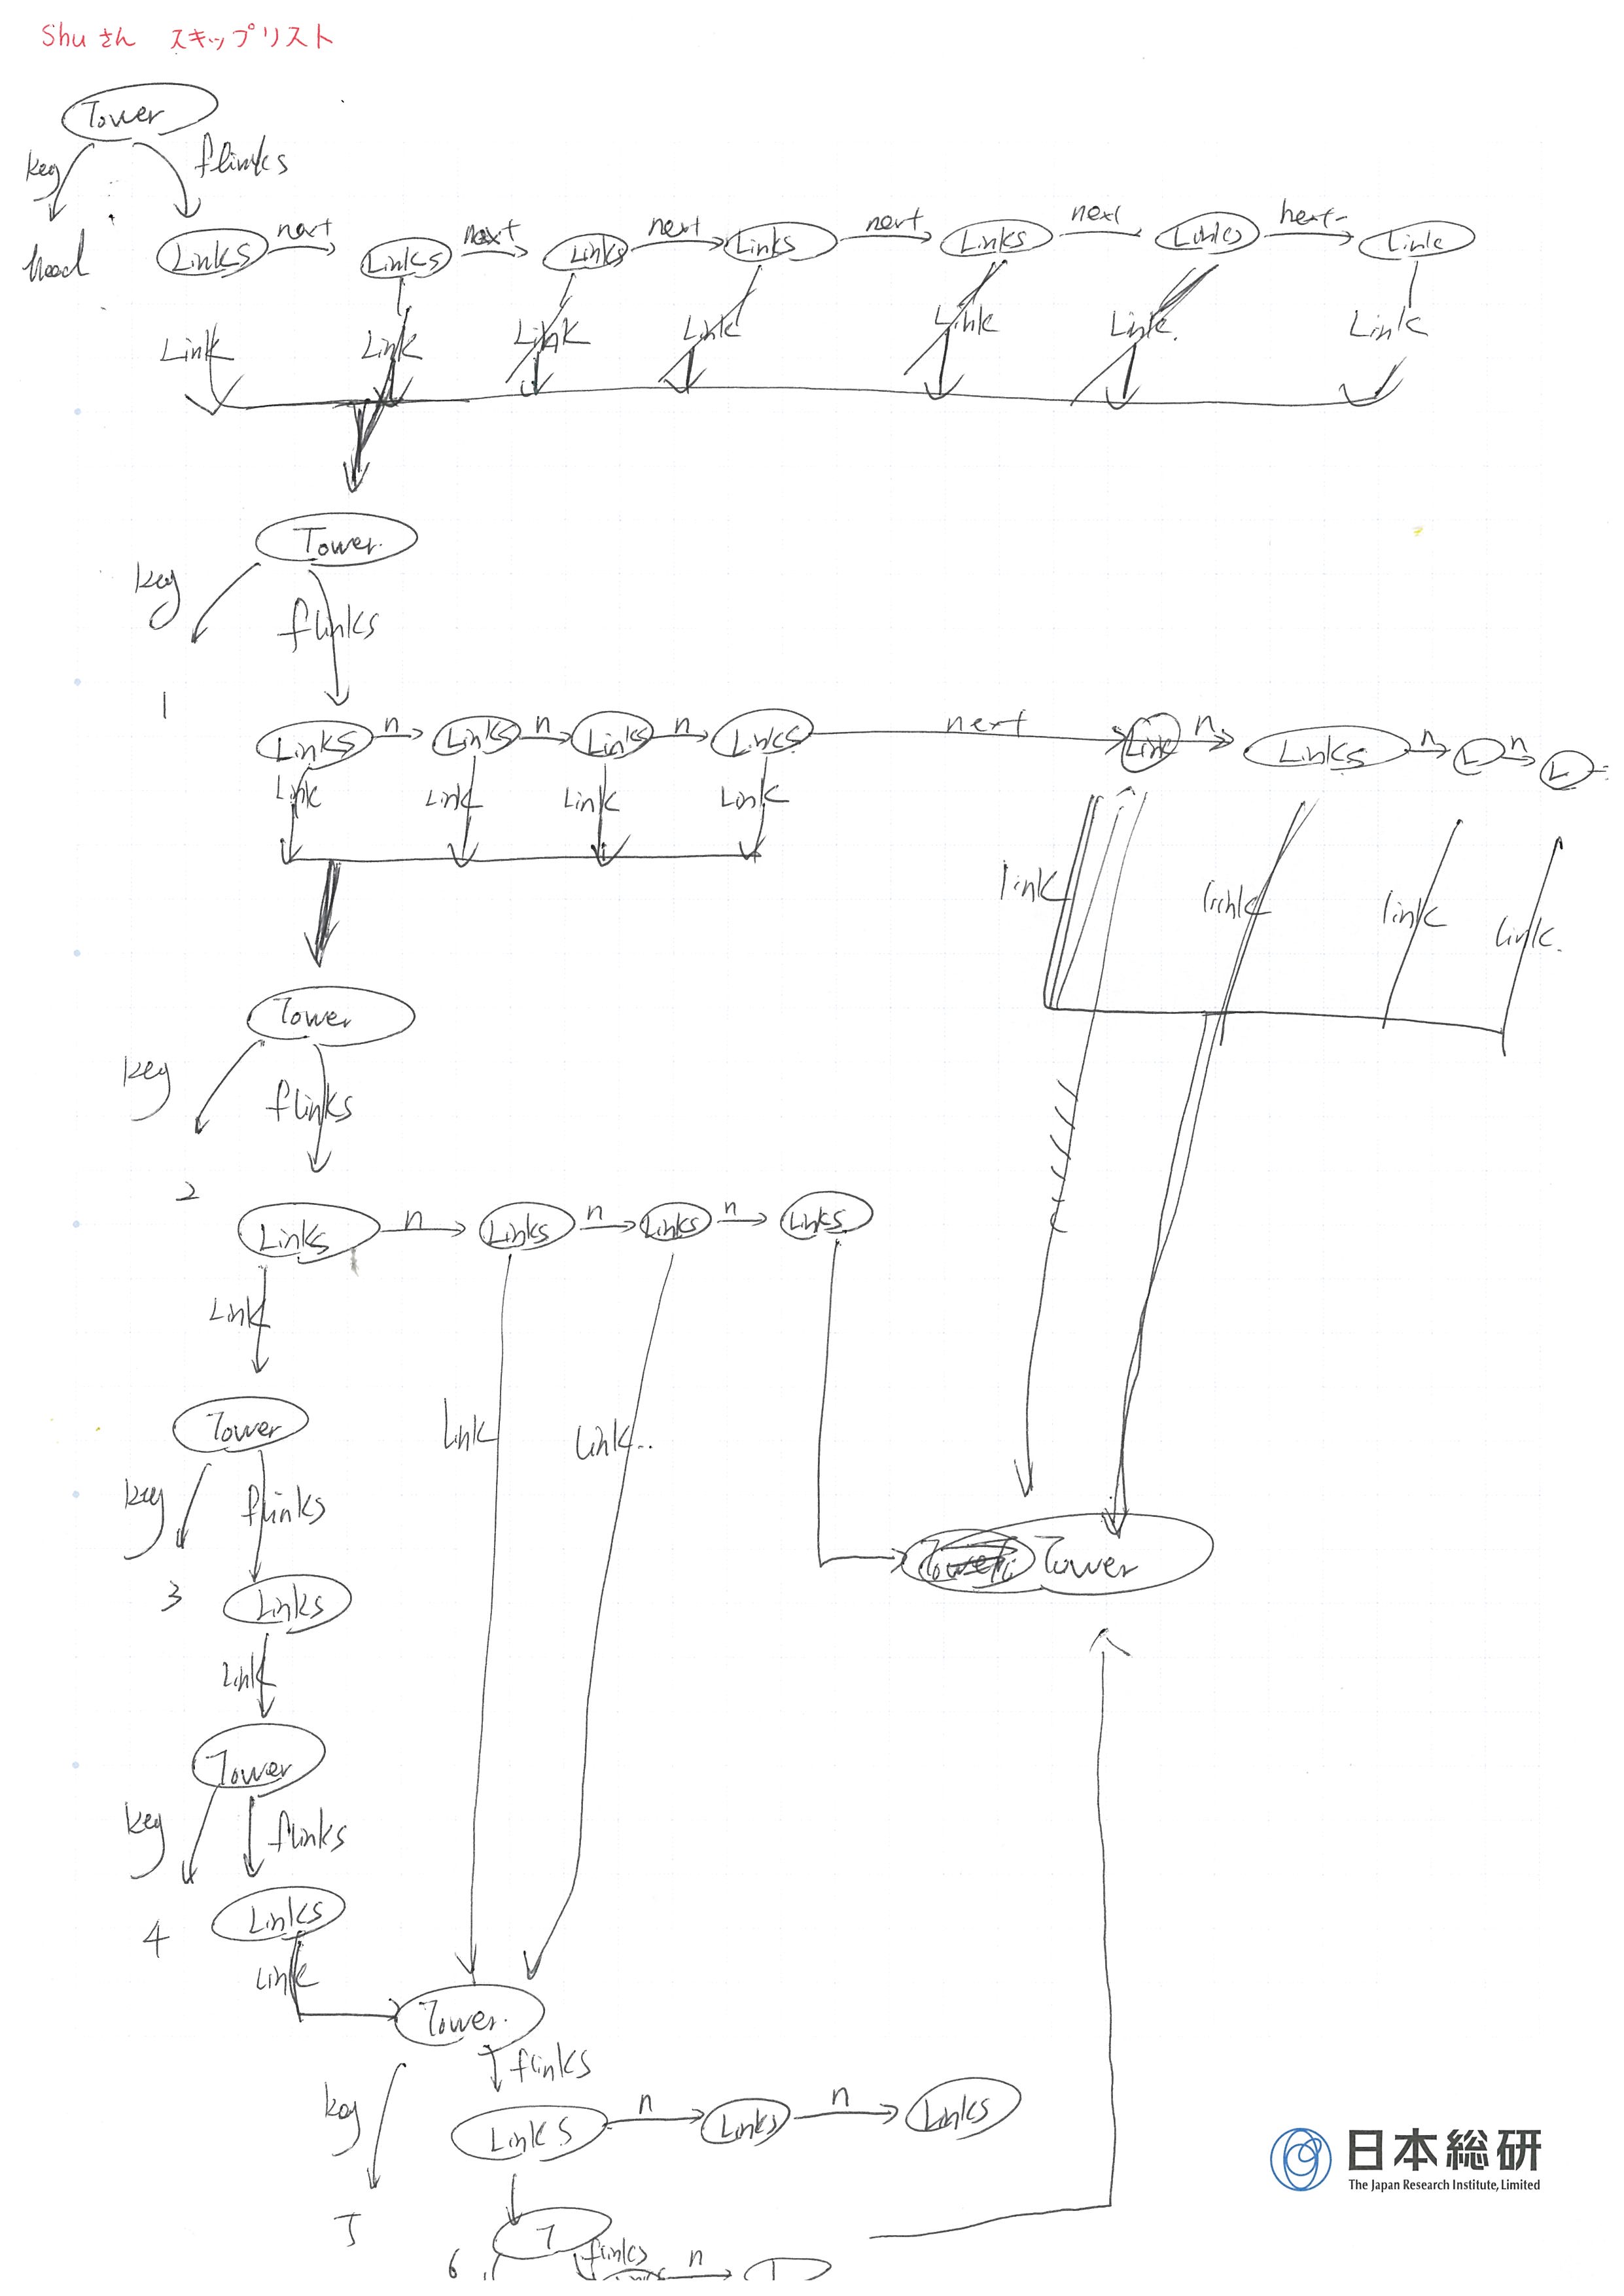 Shuさん スキップリスト
Tower
key flinks
head
Links next Links next Links next Links next Links next Links next Link
Link Link Link Link Link Link. Link
Tower.
key flinks
1
Links n Links n Links n Links next Link n Links n L n L
Link Link Link Link
link link link link.
Tower
key flinks
2
Links n Links n Links n Links
Link
Tower link link..
key flinks
Tower
3
Links
Link
Tower
key flinks
Links
4
Link
Tower.
flinks
key
Links n Links n Links
5
T
flinks n
6
日本総研
The Japan Research Institute, Limited